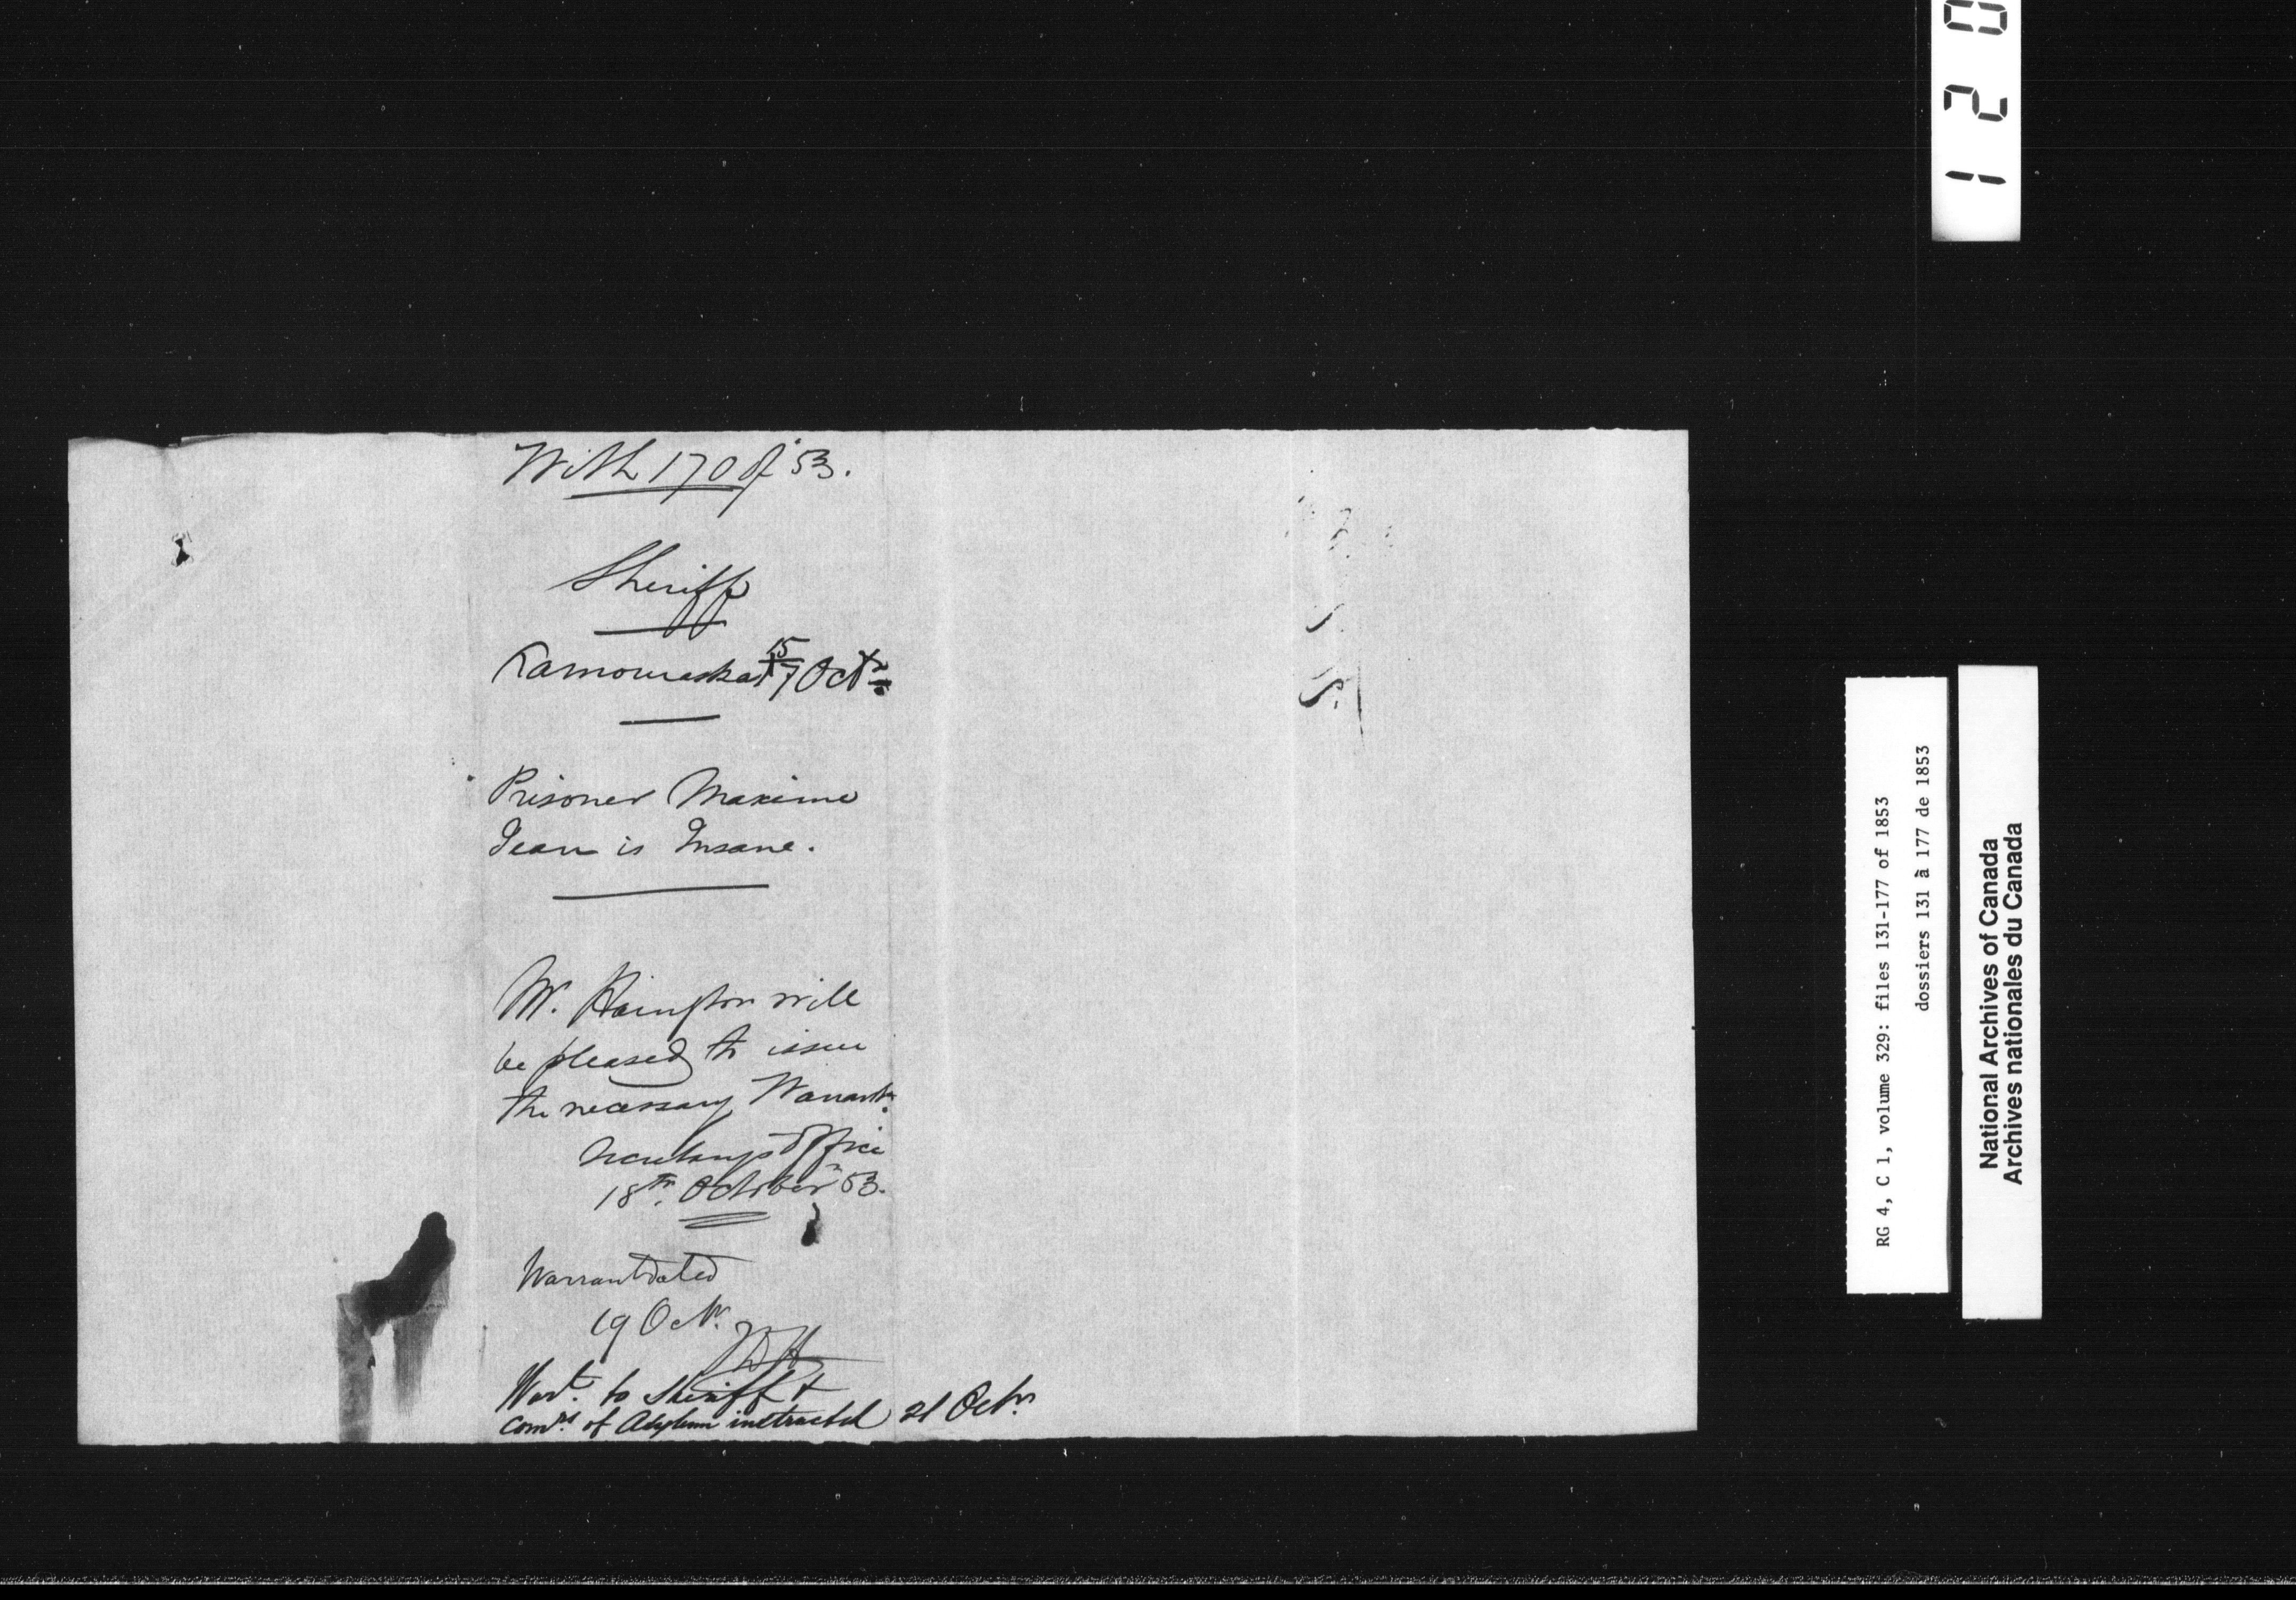 With 170 of 53.
Sheriff
Kamouraska 15 17 Octr
Prisoner Maxime
Jean is Insane.
Mr. Harington will
be pleased to issue
the necessary Warrant.
Secretary's Office
18th. October 53.
Warrant dated
19 Octr.
Wart. to Sheriff &
Comrs. of Asylum instructed 21 Octr.
120
RG 4, C 1, volume 329: files 131-177 of 1853
dossiers 131 à 177 de 1853
National Archives of Canada
Archives nationales du Canada